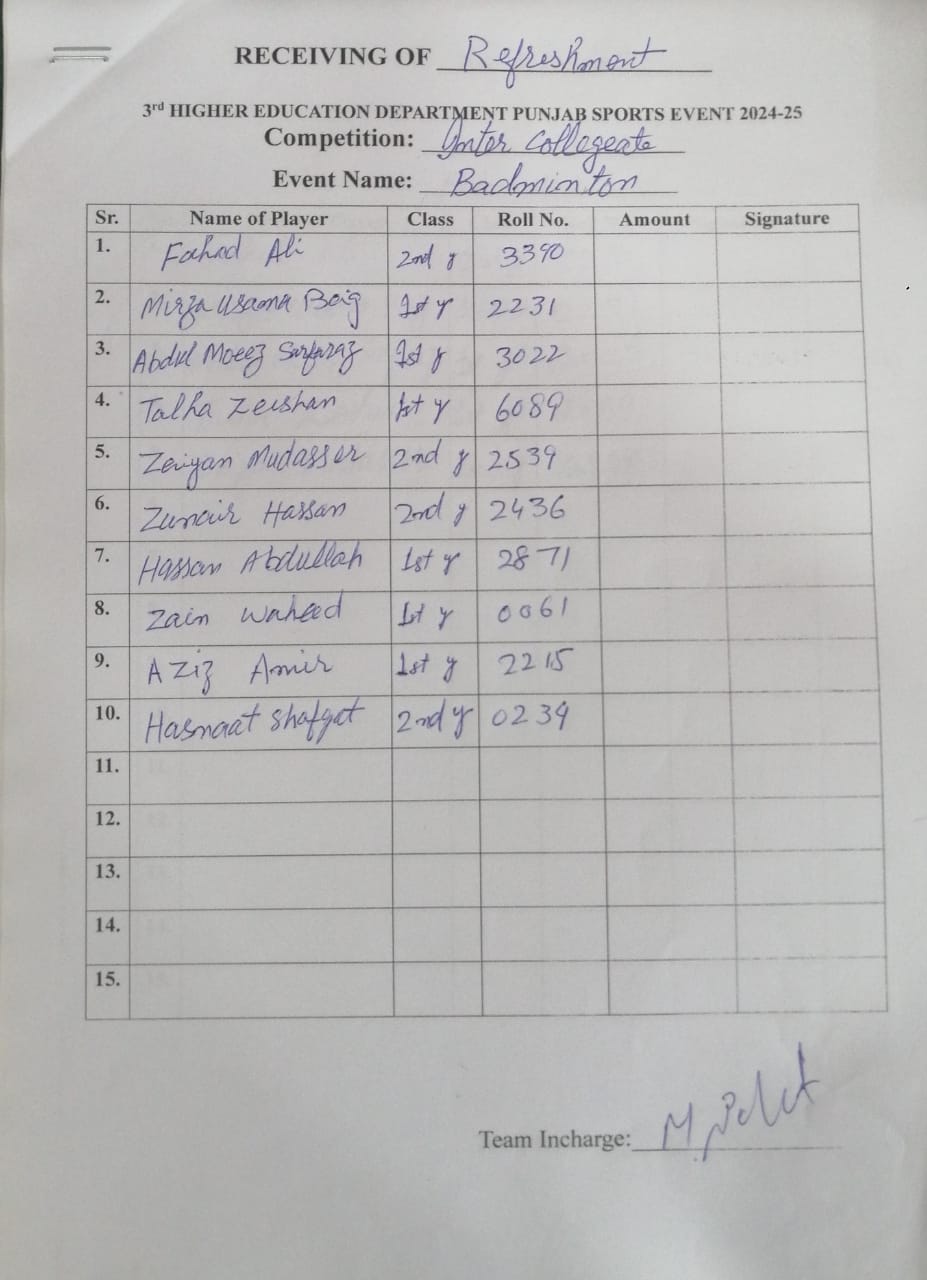 RECEIVING OF Refreshment
3rd HIGHER EDUCATION DEPARTMENT PUNJAB SPORTS EVENT 2024-25
Competition: Inter Collegeate
Event Name: Badminton
Sr. Name of Player Class Roll No. Amount Signature
1. Fahad Ali 2nd y 3390
2. Mirza Usama Baig 1st y 2231
3. Abdul Moeez Sarfaraz 1st y 3022
4. Talha Zeishan 1st y 6089
5. Mudasser 2nd y 2539
6. Zunair Hassan 2nd y 2436
7. Hassan Abdullah 1st y 2871
8. Zain Waheed 1st y 0061
9. Aziz Amir 1st y 2215
10. Hasnaat Shafqat 2nd y 0239
11.
12.
13.
14.
15.
Team Incharge: